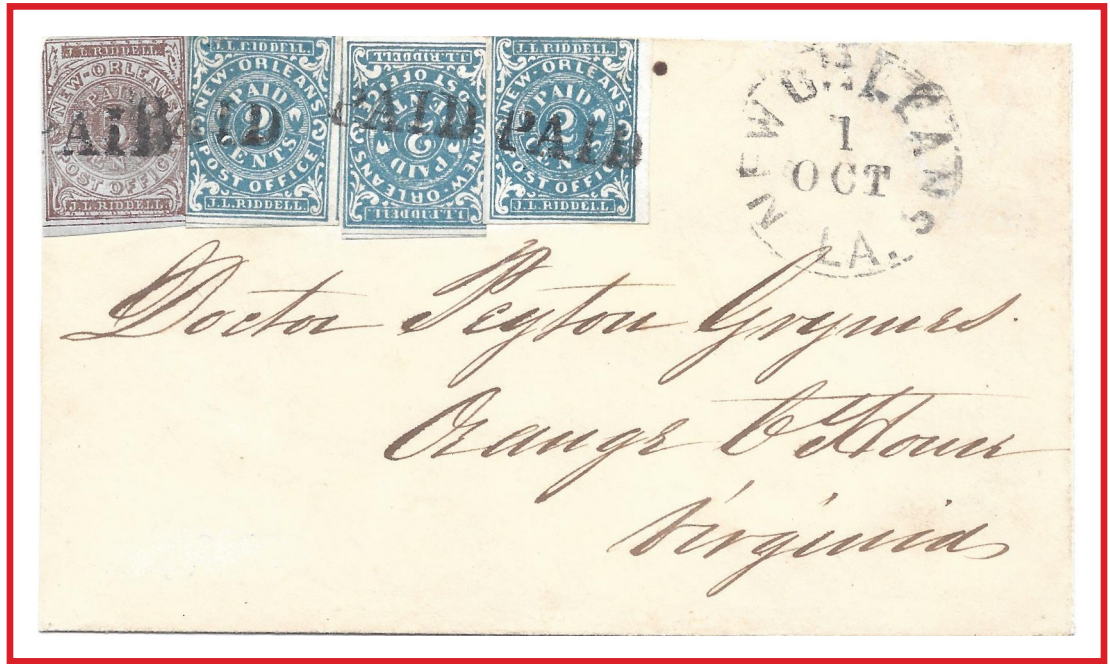 J.L.RIDDELL.
NEW-ORLEANS
PAID
5
CENTS
POST OFFICE
J.L.RIDDELL.
J.L.RIDDELL.
NEW-ORLEANS
PAID
2
CENTS
POST OFFICE
J.L.RIDDELL.
J.L.RIDDELL.
NEW-ORLEANS
PAID
2
CENTS
POST OFFICE
J.L.RIDDELL.
J.L.RIDDELL.
NEW-ORLEANS
PAID
2
CENTS
POST OFFICE
J.L.RIDDELL.
PAID
PAID
PAID
PAID
NEW ORLEANS
1
OCT
LA.
Doctor Peyton Grymes.
Orange C House
Virginia